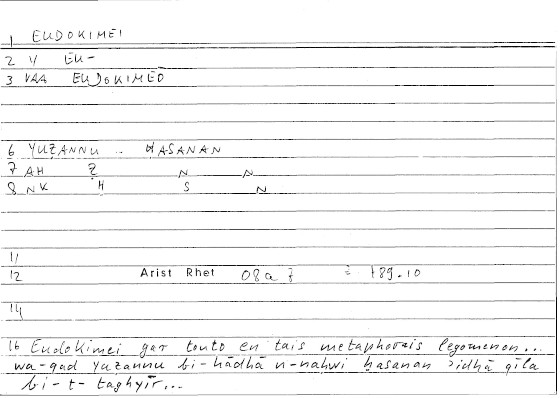 1 EUDOKIMEI
2 V EU-
3 VAA EUDOKIMEO
6 YUZANNU .. HASANAN
7 AH Ẓ N N
8 NK H S N
11
12 Arist Rhet 08a 189.10
14
16 Eudokimei gar touto en tais metaphorais legomenon...
wa-qad yuẓannu bi-hādhā n-naḥwi ḥasanan ʾidhā qīla
bi-t-taghyīr...